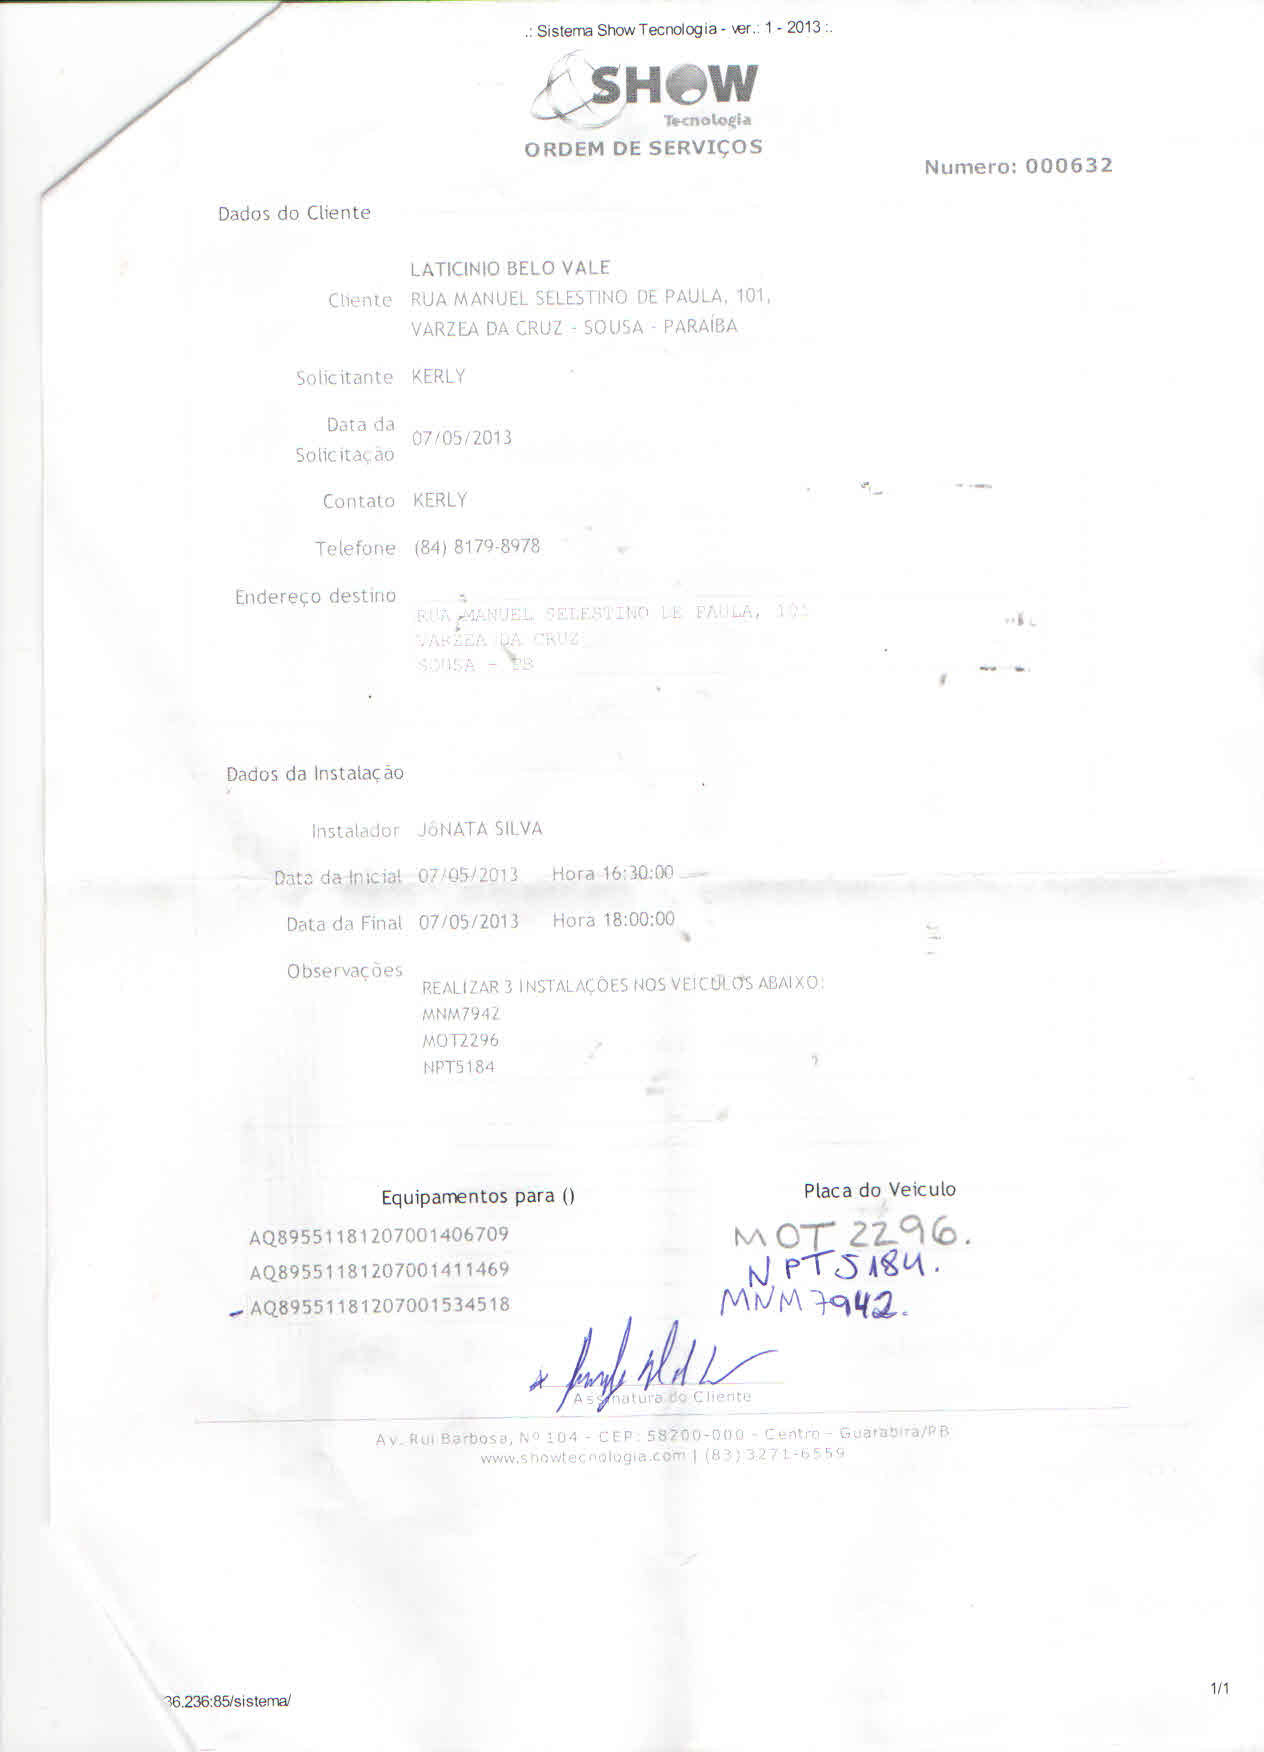 .: Sistema Show Tecnologia - ver.: 1 - 2013 :.
SHOW
Tecnologia
ORDEM DE SERVIÇOS
Numero: 000632
Dados do Cliente
LATICINIO BELO VALE
Cliente RUA MANUEL SELESTINO DE PAULA, 101,
VARZEA DA CRUZ - SOUSA - PARAÍBA
Solicitante KERLY
Data da Solicitação 07/05/2013
Contato KERLY
Telefone (84) 8179-8978
Endereço destino
RUA MANUEL SELESTINO DE PAULA, 101
VARZEA DA CRUZ
SOUSA - PB
Dados da Instalação
Instalador JÔNATA SILVA
Data da Inicial 07/05/2013 Hora 16:30:00
Data da Final 07/05/2013 Hora 18:00:00
Observações
REALIZAR 3 INSTALAÇÕES NOS VEICULOS ABAIXO:
MNM7942
MOT2296
NPT5184
Equipamentos para () Placa do Veiculo
AQ895511812070014067​09 MOT 2296.
AQ895511812070014114​69 NPT5184.
AQ895511812070015345​18 MNM7942.
Assinatura do Cliente
Av. Rui Barbosa, Nº 104 - CEP: 58200-000 - Centro - Guarabira/PB
www.showtecnologia.com | (83) 3271-6559
36.236:85/sistema/ 1/1